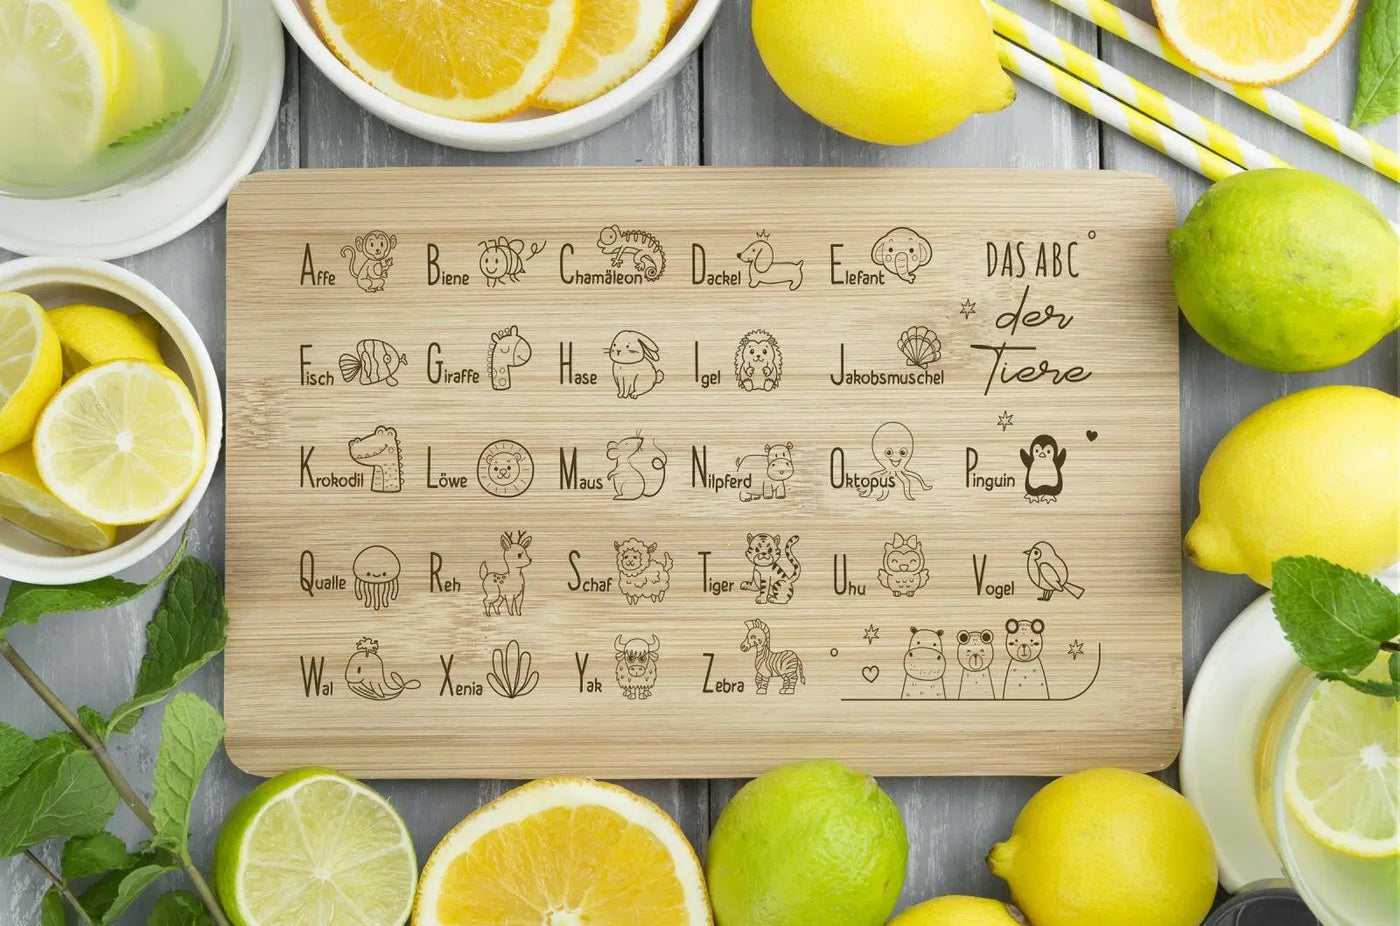 Affe Biene Chamäleon Dackel Elefant
DAS ABC
der
Tiere
Fisch Giraffe Hase Igel Jakobsmuschel
Krokodil Löwe Maus Nilpferd Oktopus Pinguin
Qualle Reh Schaf Tiger Uhu Vogel
Wal Xenia Yak Zebra